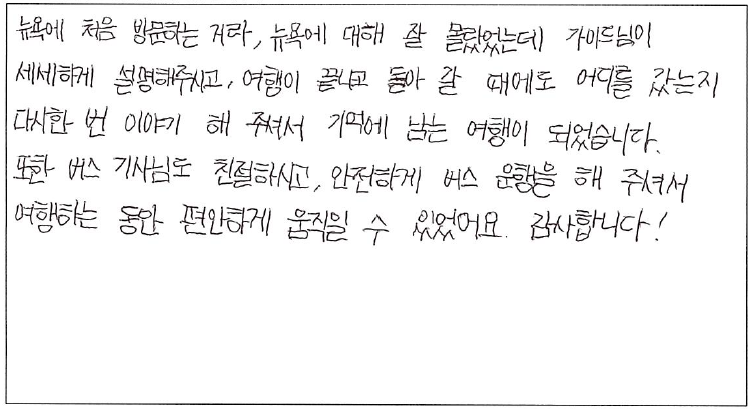 뉴욕에 처음 방문하는 거라, 뉴욕에 대해 잘 몰랐었는데 가이드님이
세세하게 설명해주시고, 여행이 끝나고 돌아 갈 때에도 어디를 갔는지
다시한 번 이야기 해 주셔서 기억에 남는 여행이 되었습니다.
또한 버스 기사님도 친절하시고, 안전하게 버스 운행을 해 주셔서
여행하는 동안 편안하게 움직일 수 있었어요. 감사합니다!